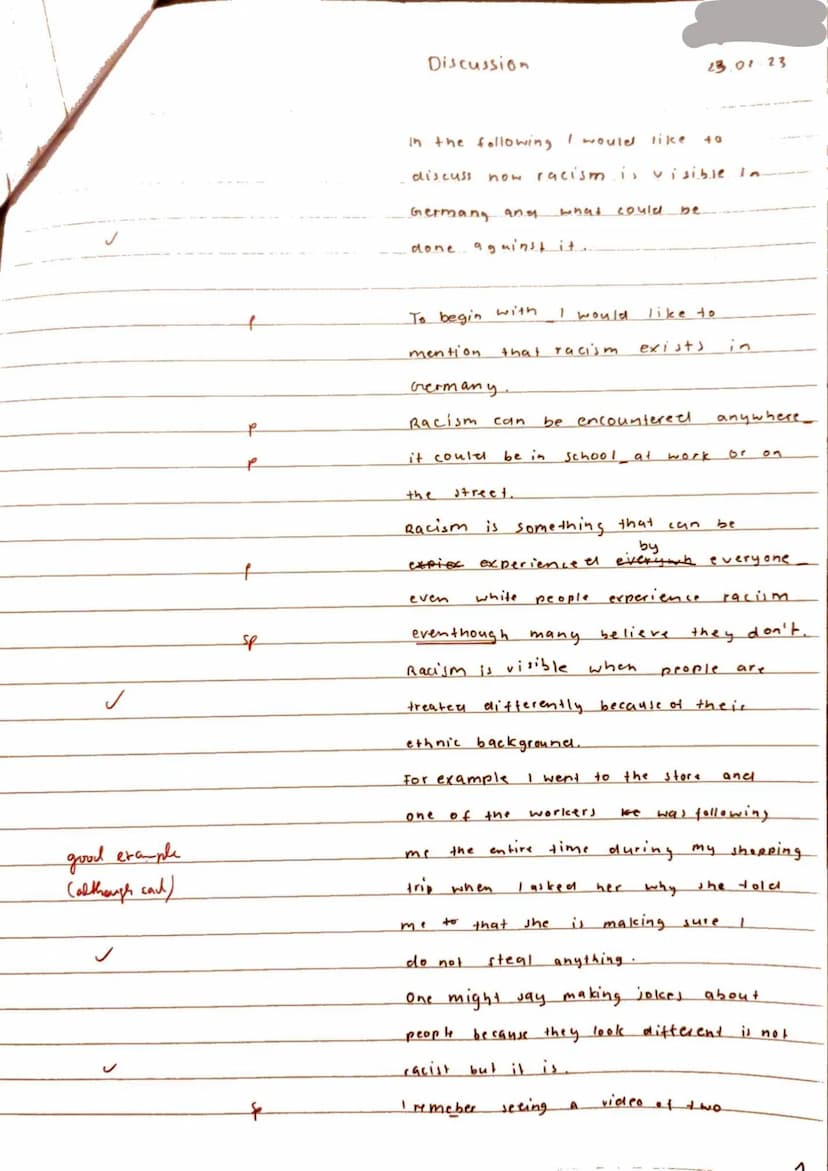 Discussion 23.01.23
In the following I would like to
discuss how racism is visible in
Germany and what could be
✓ done against it.
p To begin with_ I would like to
mention that racism exists in
Germany.
p Racism can be encountered anywhere_
p it could be in school_ at work or on
the street.
Racism is something that can be
by
p experienced everyone_
even white people experience racism
sp eventhough many believe they don't.
Racism is visible when people are
✓ treated differently because of their
ethnic background.
For example I went to the store and
one of the workers was following
good example me the entire time during my shopping
(although sad) trip when I asked her why she told
me to that she is making sure I
✓ do not steal anything.
One might say making jokes about
people because they look different is not
✓ racist but it is.
sp I remeber seeing a video of two
1